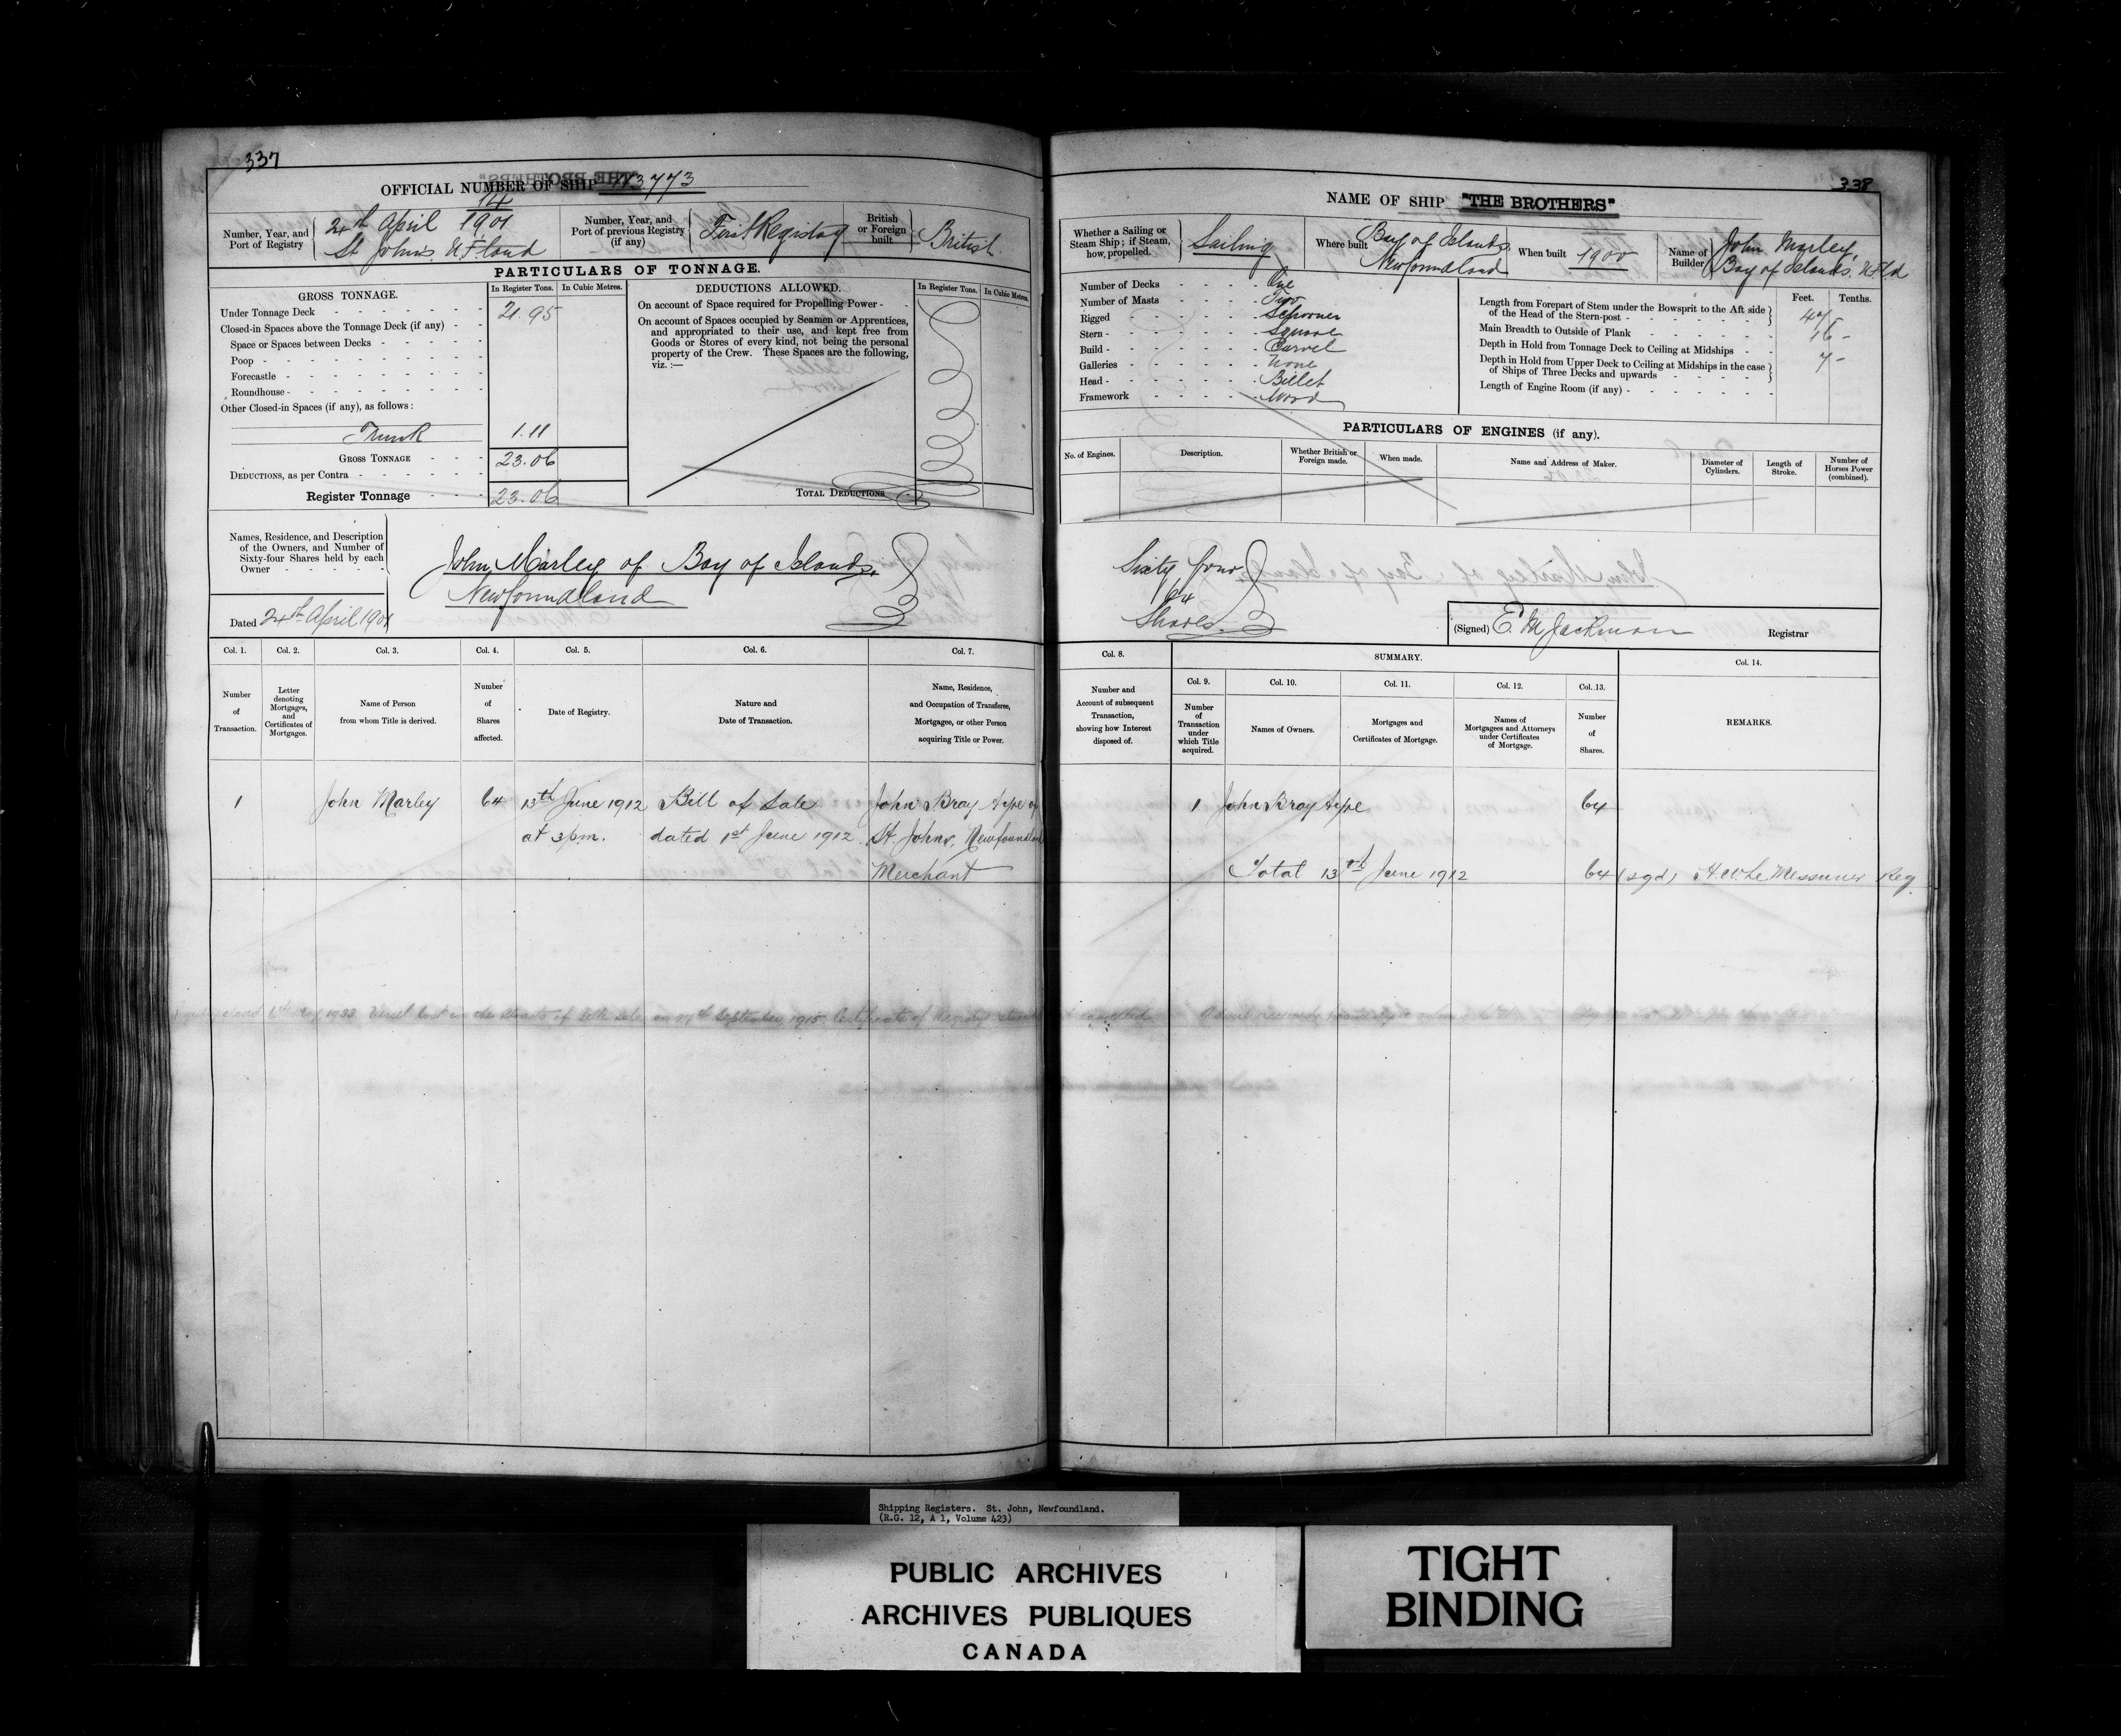 337
OFFICIAL NUMBER OF SHIP 113773
Number, Year, and Port of Registry
14
24th April 1901
St John's. N.F.land
Number, Year, and Port of previous Registry (if any)
First Registry
British or Foreign built
British.
PARTICULARS OF TONNAGE.
GROSS TONNAGE.
In Register Tons.
In Cubic Metres.
Under Tonnage Deck 21.95
Closed-in Spaces above the Tonnage Deck (if any)
Space or Spaces between Decks
Poop
Forecastle
Roundhouse
Other Closed-in Spaces (if any), as follows:
Trunk 1.11
GROSS TONNAGE 23.06
DEDUCTIONS, as per Contra
Register Tonnage 23.06
DEDUCTIONS ALLOWED.
In Register Tons.
In Cubic Metres.
On account of Space required for Propelling Power -
On account of Spaces occupied by Seamen or Apprentices,
and appropriated to their use, and kept free from
Goods or Stores of every kind, not being the personal
property of the Crew. These Spaces are the following,
viz. :—
TOTAL DEDUCTIONS
Names, Residence, and Description
of the Owners, and Number of
Sixty-four Shares held by each
Owner
John Marley of Bay of Islands.
Newfoundland
Dated 24th April 1901
Col. 1.
Number of Transaction.
Col. 2.
Letter denoting Mortgages, and Certificates of Mortgages.
Col. 3.
Name of Person from whom Title is derived.
Col. 4.
Number of Shares affected.
Col. 5.
Date of Registry.
Col. 6.
Nature and Date of Transaction.
Col. 7.
Name, Residence, and Occupation of Transferee, Mortgagee, or other Person acquiring Title or Power.
1 John Marley 64 13th June 1912 Bill of Sale John Bray Ayre of
at 3 pm. dated 1st June 1912. St. Johns, Newfoundland
Merchant
338
NAME OF SHIP "THE BROTHERS"
Whether a Sailing or Steam Ship; if Steam, how, propelled.
Sailing
Where built
Bay of Islands,
Newfoundland
When built 1900
Name of Builder
John Marley,
Bay of Islands. NFld
Number of Decks One
Number of Masts Two
Rigged Schooner
Stern Square
Build Carvel
Galleries None
Head Billet
Framework Wood
Feet.
Tenths.
Length from Forepart of Stem under the Bowsprit to the Aft side
of the Head of the Stern-post 47
Main Breadth to Outside of Plank 16 -
Depth in Hold from Tonnage Deck to Ceiling at Midships 7 -
Depth in Hold from Upper Deck to Ceiling at Midships in the case
of Ships of Three Decks and upwards
Length of Engine Room (if any)
PARTICULARS OF ENGINES (if any).
No. of Engines.
Description.
Whether British or Foreign made.
When made.
Name and Address of Maker.
Diameter of Cylinders.
Length of Stroke.
Number of Horses Power (combined).
Sixty four
64
Shares.
(Signed) E. M Jackman Registrar
Col. 8.
Number and Account of subsequent Transaction, showing how Interest disposed of.
SUMMARY.
Col. 9.
Number of Transaction under which Title acquired.
Col. 10.
Names of Owners.
Col. 11.
Mortgages and Certificates of Mortgage.
Col. 12.
Names of Mortgagees and Attorneys under Certificates of Mortgage.
Col. 13.
Number of Shares.
Col. 14.
REMARKS.
1 John Bray Ayre 64
Total 13th June 1912 64 (sgd) H. W. Le Messurier Reg
closed 1933 Vessel lost in the Straits of Belle Isle on September 1915 Certificate of Registry
Shipping Registers. St. John, Newfoundland.
(R.G. 12, A 1, Volume 423)
PUBLIC ARCHIVES
ARCHIVES PUBLIQUES
CANADA
TIGHT
BINDING